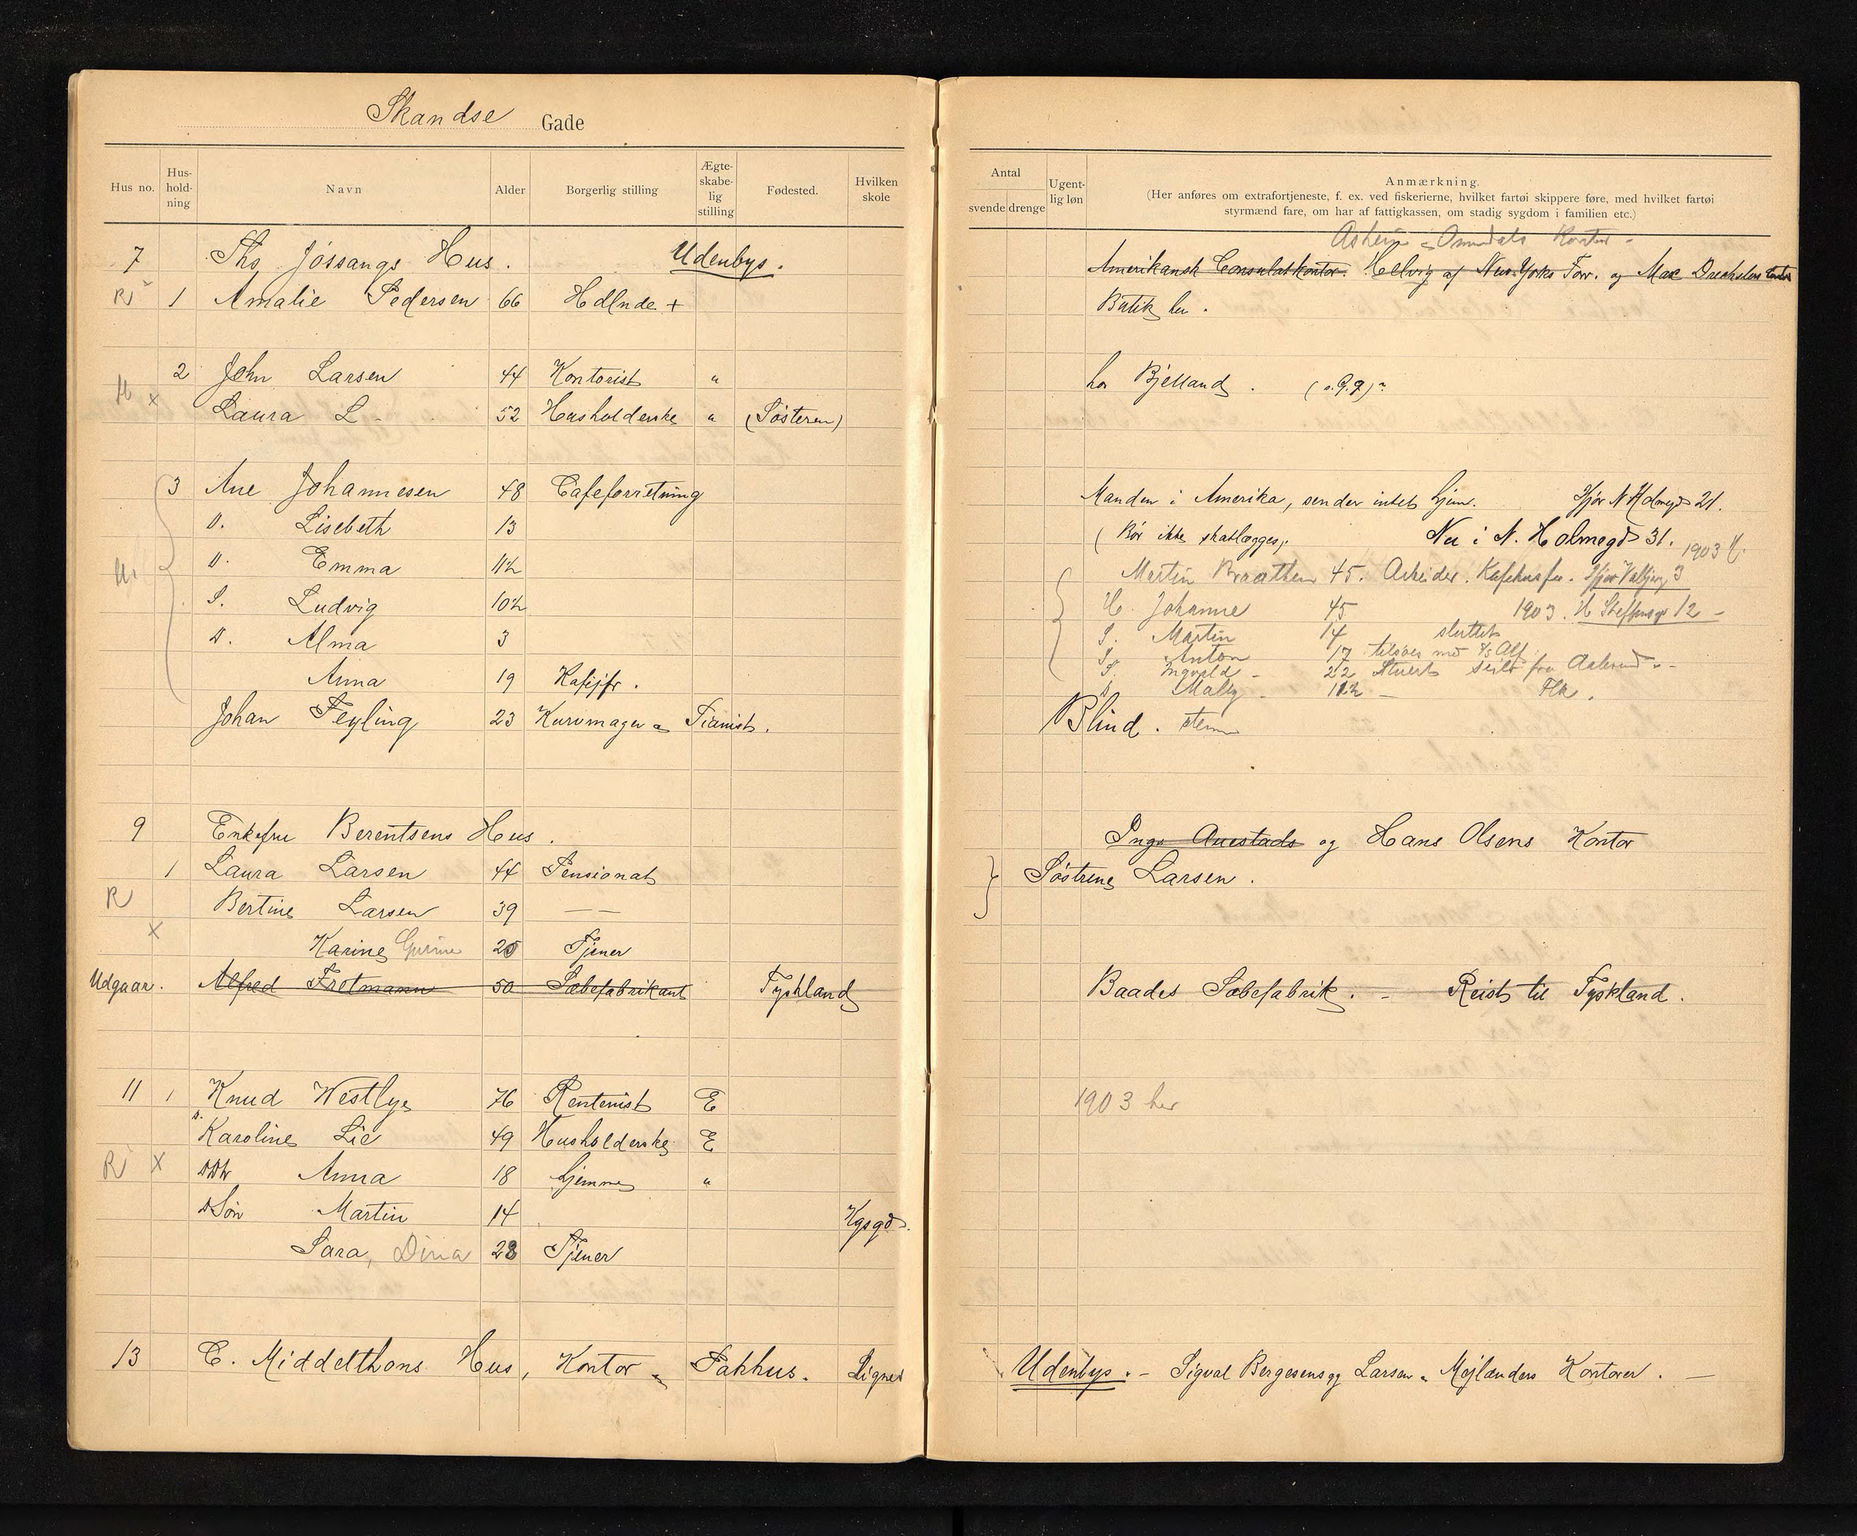 Skandse Gade
Hus no. Hus-hold-ning Navn Alder Borgerlig stilling Ægte-skabe-lig stilling Fødested. Hvilken skole
7 Ths Jøssangs Hus. Udenbys.
1 Amalie Pedersen 66 Hdlnde +
2 John Larsen 44 Kontorist "
Laura L - 52 Husholderske " (Søsteren)
3 Ane Johannesen 48 Cafeforretning
D. Lisebeth 13
D. Emma 11½
S. Ludvig 10½
D. Alma 3
Anna 19 Kafejfr.
Johan Feyling 23 Kurvmager Pianist.
9 Enkefru Berentsens Hus.
1 Laura Larsen 44 Pensionat
R Bertine Larsen 39 — —
x Karine Gurine 20 Tjener
Udgaar. Alfred Fretmann 50 Sæbefabrikant Tyskland
11 1 Knud Westlye 76 Rentenist E
D. Karoline Lie 49 Husholderske E
R x DDtr Anna 18 hjemme "
DSøn Martin 14 Kgsgd.
Sara, Dina 28 Tjener
13 C. Middelthons Hus, Kontor Pakhus. Lignes
Antal
svende drenge
Ugent-lig løn
Anmærkning.
(Her anføres om extrafortjeneste, f. ex. ved fiskerierne, hvilket fartøi skippere føre, med hvilket fartøi
styrmænd fare, om har af fattigkassen, om stadig sygdom i familien etc.)
Omdals Kontor -
Amerikansk Consulatskontor. Helvig af New Yorks Forr. og Max Drechslers
Butik her.
hos Bjelland.
Manden i Amerika, sender intet hjem. Ifjor N Holmegd 21.
(Bør ikke skatlægges) Nu i N. Holmegd 31. 1903
Martin Braathen 45. Arbeider. Ifjor 3
H. Johanne 45 1903. H Steffensgt 12 -
S. Martin 14 sluttet
S. Anton 17 tilsøes med S/S Alf
S. Ingvald - 22 Stuert
Mally - 12½ - Flk.
Blind.
Inga Auestads og Hans Olsens Kontor
Søstrene Larsen.
Baades Sæbefabrik. - Reist til Tyskland.
1903 her
Udenbys. - Sigval Bergesens og Larsen Mejlænders Kontorer. —